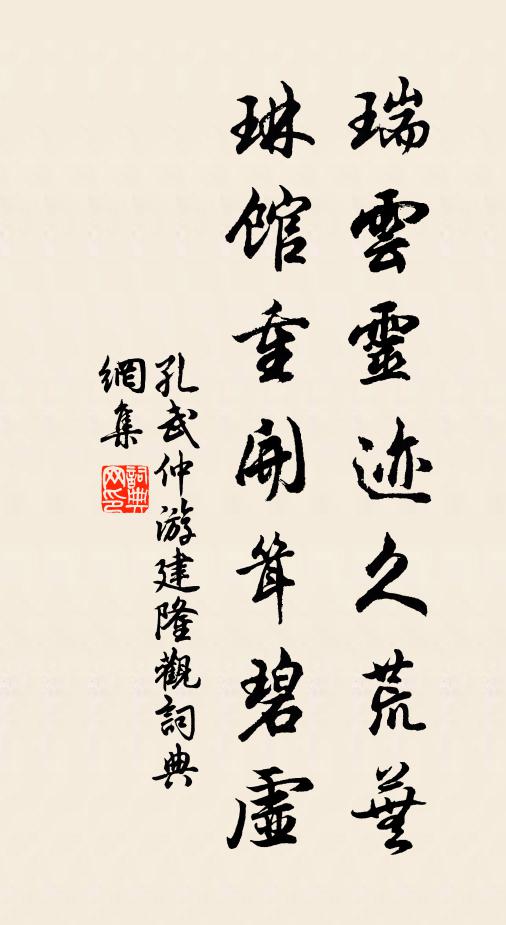 瑞雲靈迹久荒蕪
琳館重開聳碧虛
孔武仲游建隆觀詞典
網集
詞典網印